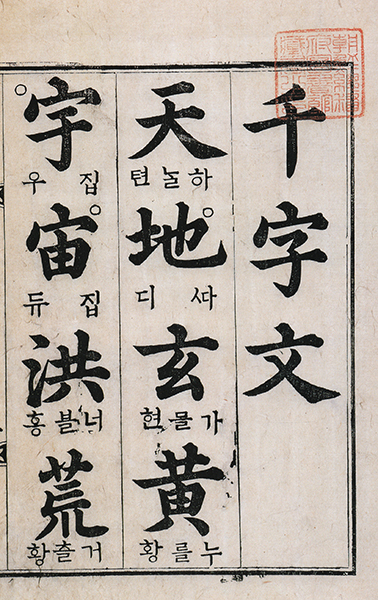 千字文
天
하ᄂᆞᆯ 텬
地
ᄯᅡ 디
玄
가믈 현
黃
누를 황
宇
집 우
宙
집 듀
洪
너블 홍
荒
거츨 황